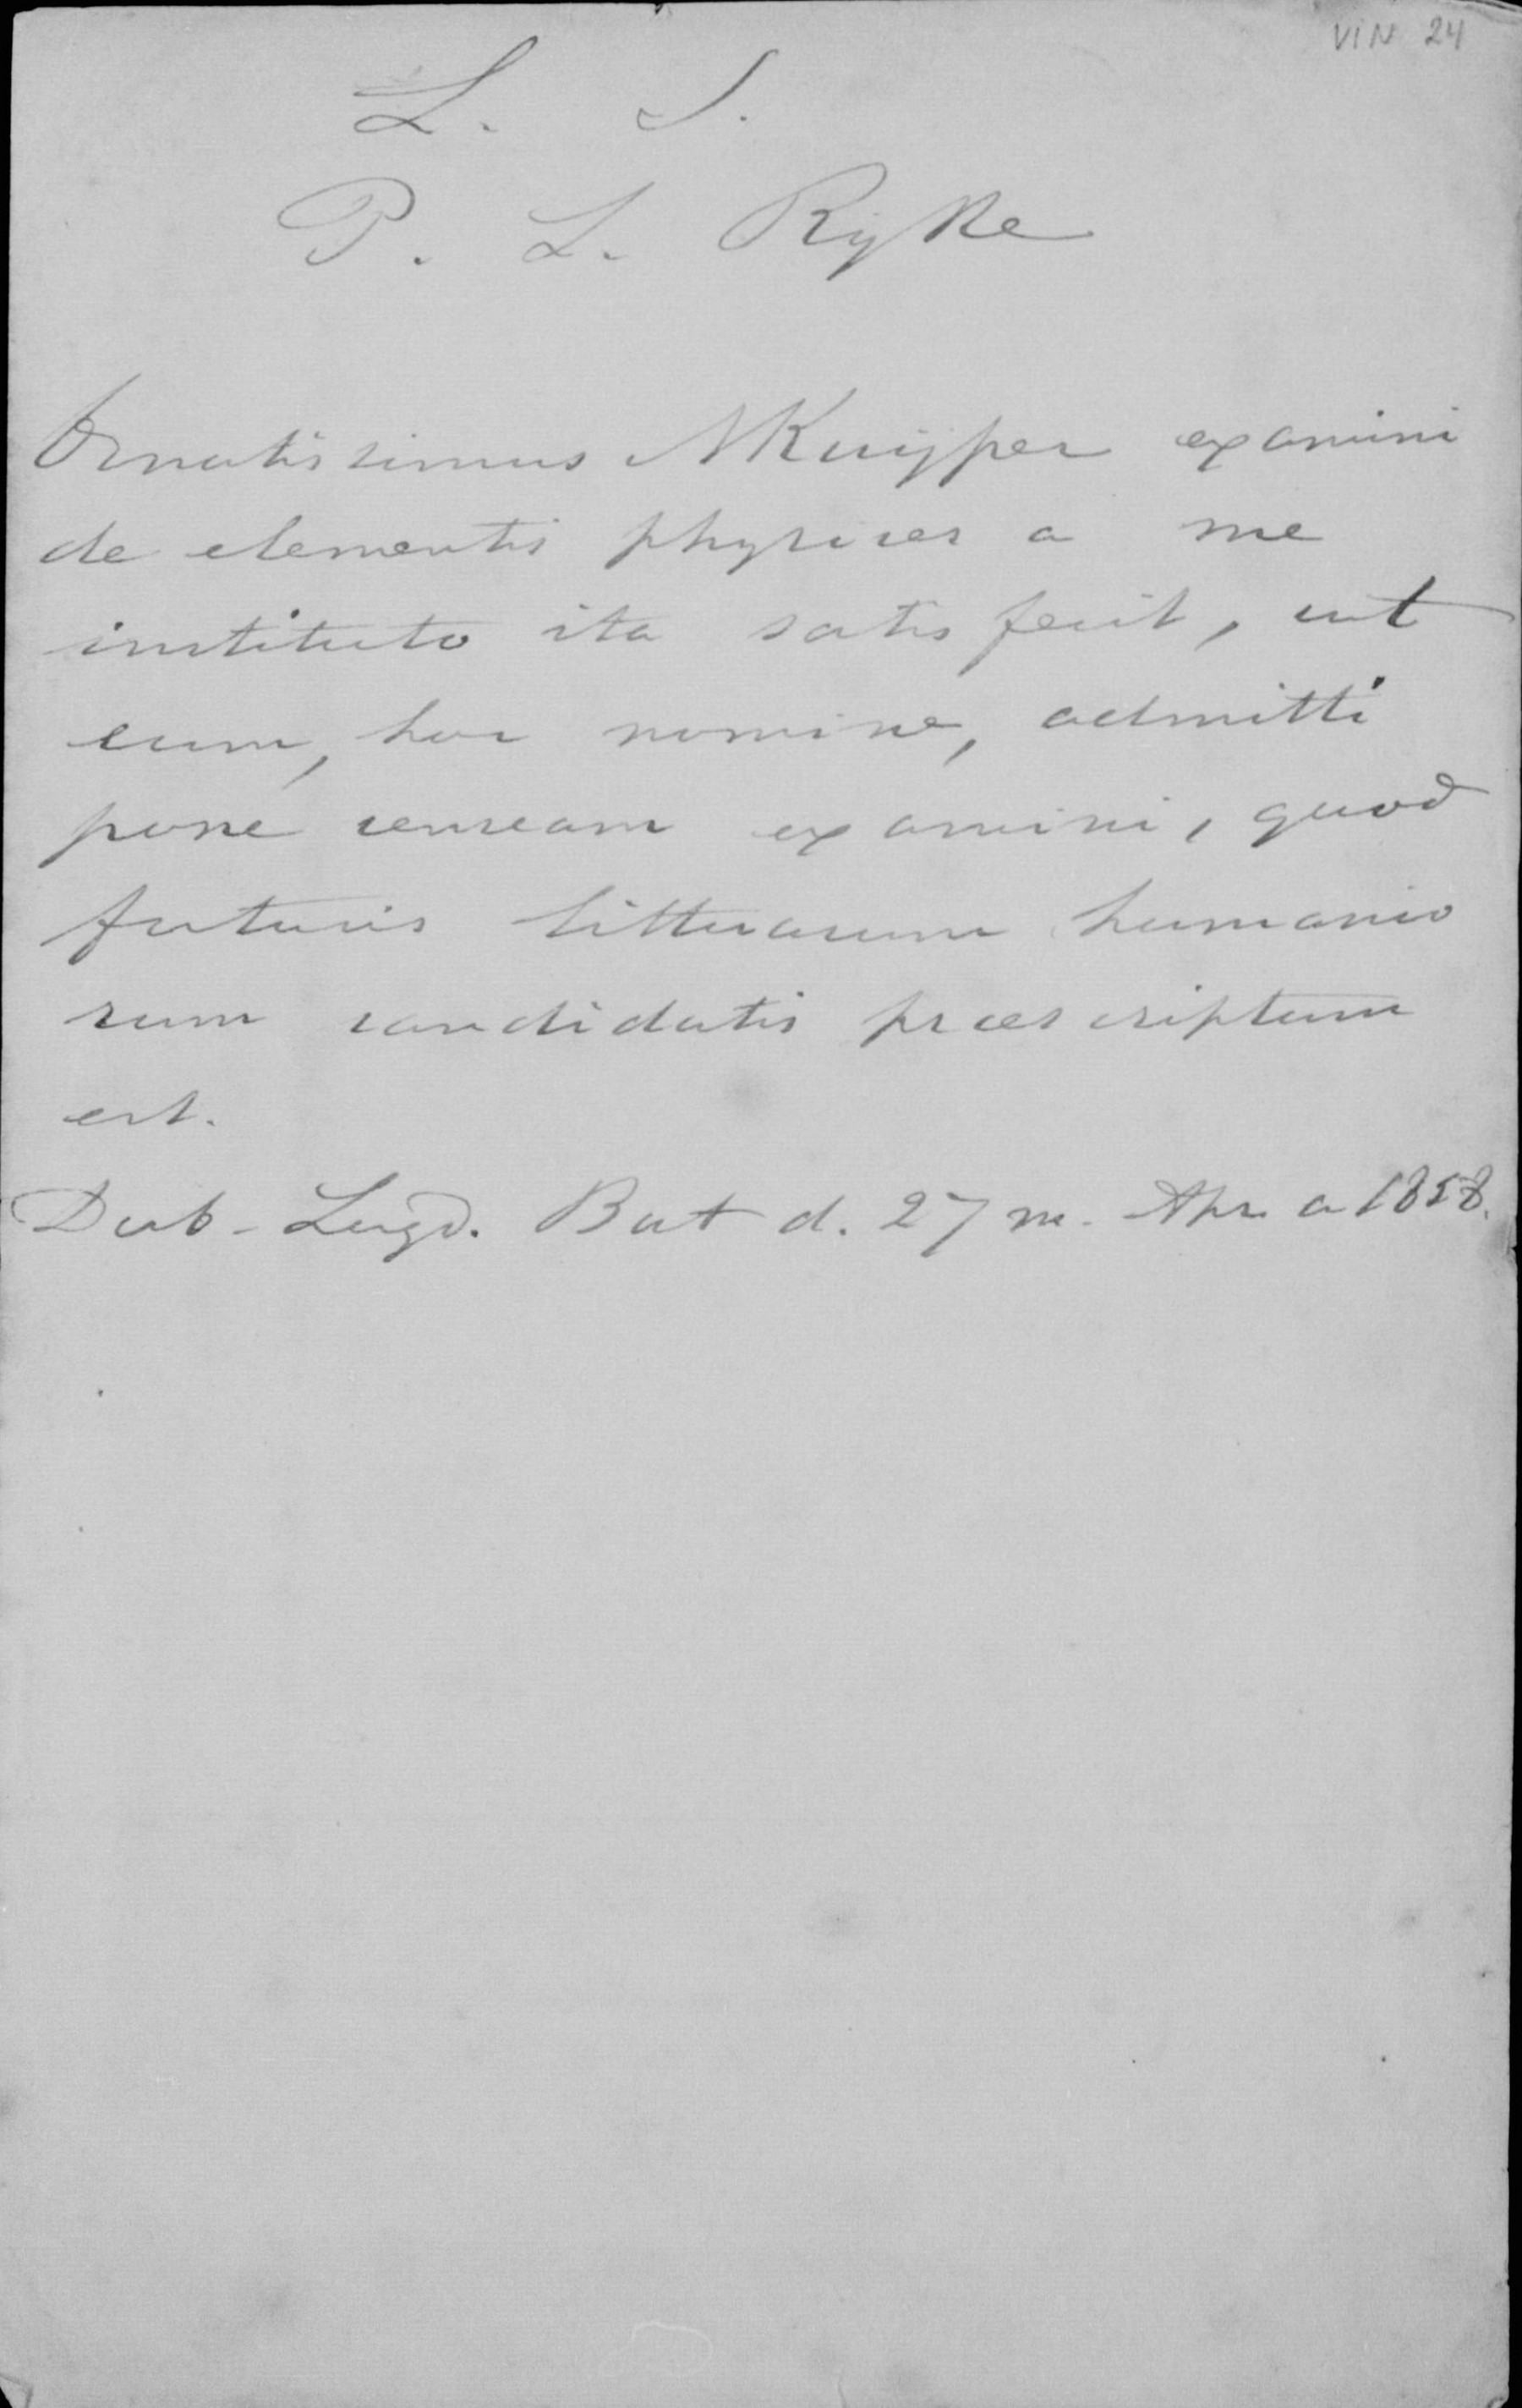 VIN 24
L. S.
P. L. Rijke
Ornatissimus A Kuijper examini
de elementis physices a me
instituto ita satisfecit, ut
eum, hoc nomine, admitti
posse censeam examini, quod
futuris litterarum humanio
rum candidatis praescriptum
est.
Dab- Lugd. Bat d. 27 m. Apr a 1858.